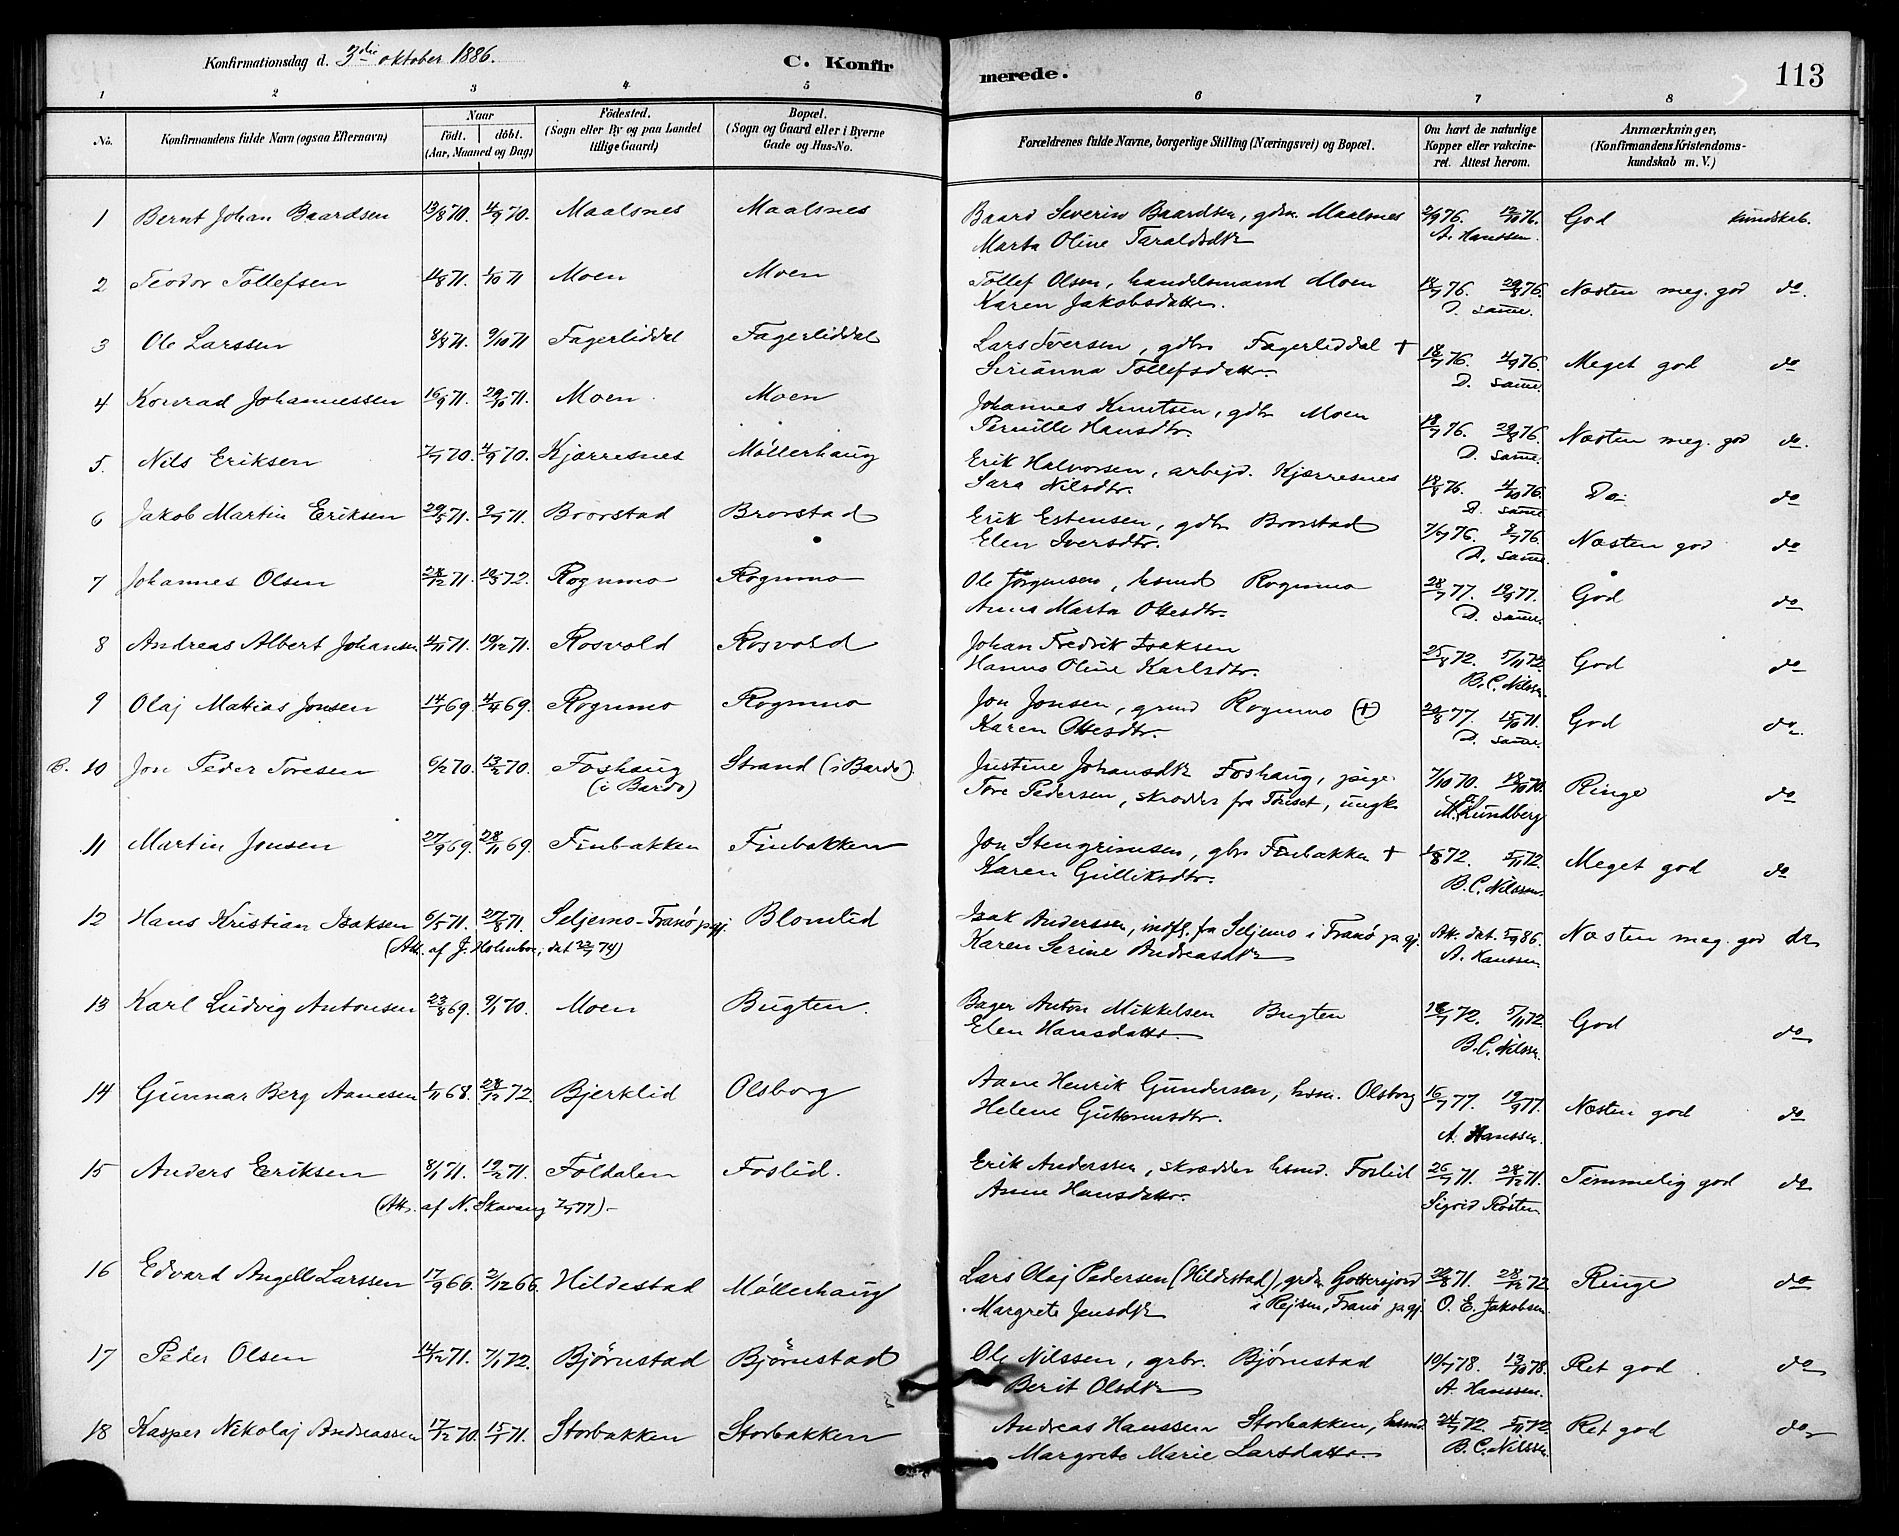 Konfirmationsdag d. 3die oktober 1886. C. Konfir merede. 113
1 2 3 4 5 6 7 8
No. Konfirmandens fulde Navn (ogsaa Efternavn) Naar født. døbt. (Aar, Maaned og Dag) Fødested. (Sogn eller By og paa Landet tillige Gaard) Bopæl. (Sogn og Gaard eller i Byerne Gade og Hus-No. Forældrenes fulde Navne, borgerlige Stilling (Næringsvei) og Bopæl. Om havt de naturlige Kopper eller vakcineret. Attest herom. Anmærkninger, (Konfirmandens Kristendomskundskab m. V.)
1 Bernt Johan Baardsen 13/8 70. 4/9 70. Maalsnes Maalsnes Baard Severin Baardsen, gdbr. Maalsnes 2/9 76. 12/10 76. God kundskab.
Marta Oline Taraldsdtr A. Hanssen.
2 Teodor Tollefsen 4/8 71. 1/10 71 Moen Moen Tollef Olsen, handelsmand Moen 18/7 76. 29/8 76. Næsten meg. god do.
Karen Jakobsdatter. D. samme.
3 Ole Larssen 8/8 71. 9/10 71 Fagerliddal Fagerliddal Lars Iversen, gdbr Fagerliddal + 18/7 76. 4/9 76. Meget god do
Serianna Tollefsdatter. D. samme.
4 Konrad Johannessen 16/9 71. 29/10 71. Moen Moen Johannes Knutsen, gdbr Moen 18/7 76. 29/8 76. Næsten meg. god do.
Pernille Hansdtr. D. samme.
5. Nils Eriksen 7/7 70. 4/9 70. Kjærresnes Møllerhaug Erik Halvorsen, arbejd. Kjærresnes 18/8 76. 4/10 76. Do. do
Sara Nilsdtr. D. samme
6 Jakob Martin Eriksen 29/5 71. 9/7 71. Brorstad Brorstad Erik Estensen, gdbr Brorstad 7/6 76. 8/7 76. Næsten god do
Elen Iversdtr. D. samme.
7 Johannes Olsen 28/12 71. 19/5 72. Rognmo Rognmo Ole Jørgensen, hsmd Rognmo 28/7 77. 19/9 77. God do
Anne Marta Ottesdtr. D. samme.
8 Andreas Albert Johansen 4/11 71. 19/12 71. Rosvold Rosvold Johan Fredrik Isaksen 25/8 72. 5/11 72. God do
Hanna Oline Karlsdtr. B. C. Nilssen.
9 Olaj Matias Jonsen 14/1 69. 4/4 69. Rognmo Rognmo Jon Jonsen, Rognmo (+) 29/8 77. 15/10 71. God do.
Karen Ottesdtr. D. samme.
B. 10 Jon Peder Toresen 6/2 70. 13/2 70. Foshaug Strand (i Bardo). Justine Johansdtr Foshaug, pige. 7/10 70. 18/10 70. Ringe do
(i Bardo) Tore Pedersen, skrædder fra Tønset, ungk. M. Lundberg
11 Martin Jonsen 27/9 69. 28/11 69. Finbakken Finbakken Jon Stengrimsen, gbr Finbakken + 72. 5/11 72. Meget god do
Karen Gulliksdtr. B. C. Nilssen.
12 Hans Kristian Isaksen 6/5 71. 27/8 71. Seljemo-Tranø pgj. Blomlid Isak Anderssen, indfl. fra Seljemo i Tranø pgj. Att. dat. 5/9 86. Næsten meg. god do
(Att. af J. Holmboe, dat 22/7 74) Karen Serine Andreasdtr A. Hanssen.
13 Karl Ludvig Antonsen 23/8 69. 9/1 70. Moen Bugten. Bager Anton Mikkelsen Bugten 72. 5/11 72. God do
Elen Hansdatter. B. C. Nilssen.
14 Gunnar Berg Aanesen 1/11 68. 28/12 72. Bjerklid Olsborg Aane Henrik Gundersen, hsm. Olsborg 16/7 77. 19/9 77. Næsten god do
Helene Guttormsdtr. A. Hanssen.
15 Anders Eriksen 8/1 71. 19/2 71. Foldalen Foslid. Erik Anderssen, skrædder hsmd. Foslid 26/7 71. 28/12 71. Temmelig god do
(Att. af N. Skavang 2/7 77). Anne Hansdatter. Sigrid Rosten
16 Edvard Angell Larssen 17/9 66. 2/12 66. Hildestad Møllerhaug Lars Olaj Pedersen (Hildestad), grdbr. Gottersjord 29/8 71. 28/12 72. Ringe do
Margrete Jensdtr i Rejsen, Tranø pgj. O. E. Jakobsen.
17 Peder Olsen 14/12 71. 7/1 72. Bjørnstad Bjørnstad Ole Nilssen, grbr. Bjørnstad 10/7 78. 13/10 78. Ret god do
Berit Olsdtr A. Hanssen.
18 Kasper Nikolaj Andreassen 17/12 70. 15/1 71. Storbakken Storbakken Andreas Hanssen Storbakken, hsmd. 24/7 72. 5/11 72. Ret god do
Margrete Marie Larsdatter. B. C. Nilssen.